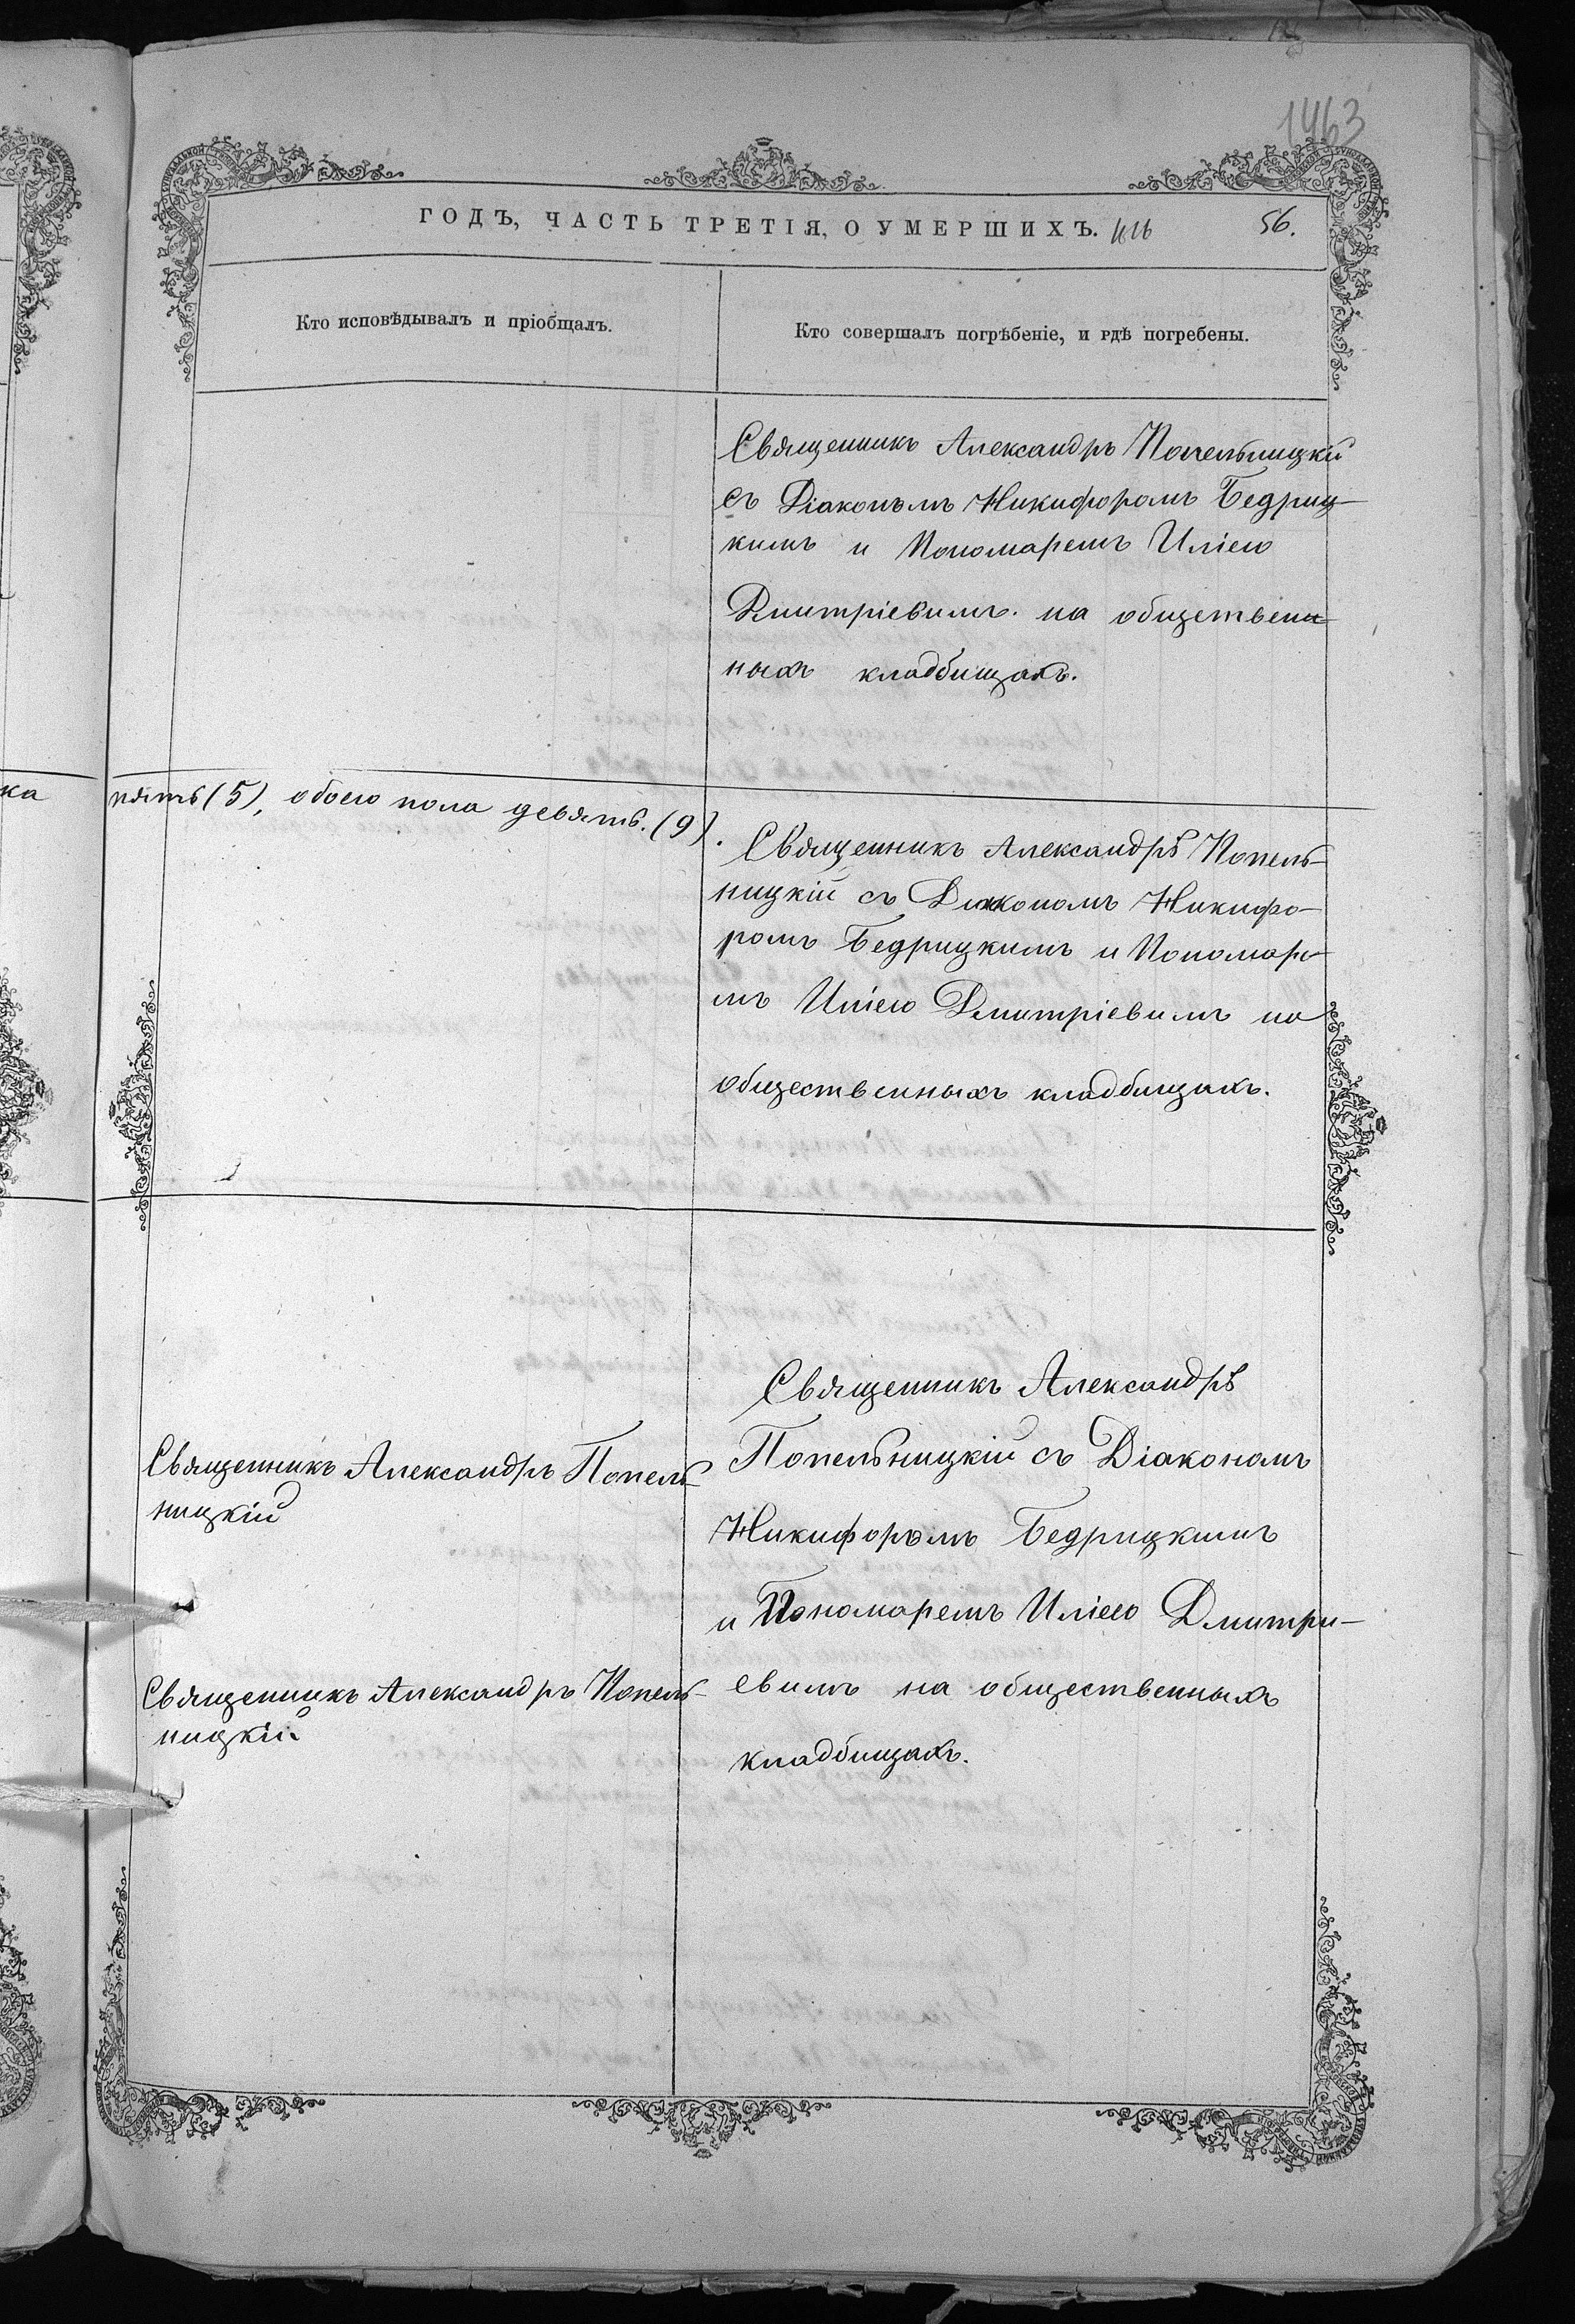 1463
ГОДЪ, ЧАСТЬ ТРЕТІЯ, О УМЕРШИХЪ.
56.
Кто исповѣдывалъ и пріобщалъ.
Кто совершалъ погрѣбеніе, и гдѣ погребены.
Священникъ Александръ Попельницкій
съ Діакономъ Никифоромъ Бедриц-
кимъ и Пономаремъ Иліею
Дмитріевымъ на обществен-
ныхъ кладбищахъ.
ка
пять (5), обоего пола девять. (9).
Священникъ Александръ Попель-
ницкій съ Діакономъ Никифо-
ромъ Бедрицкимъ и Пономаре-
мъ Иліею Дмитріевымъ на
общественныхъ кладбищахъ.
Священникъ Александръ Попель-
ницкій
Священникъ Александръ Попель-
ницкій.
Священникъ Александръ
Попельницкій съ Діакономъ
Никифоромъ Бедрицкимъ
и Пономаремъ Иліею Дмитри-
евымъ на общественныхъ
кладбищахъ.